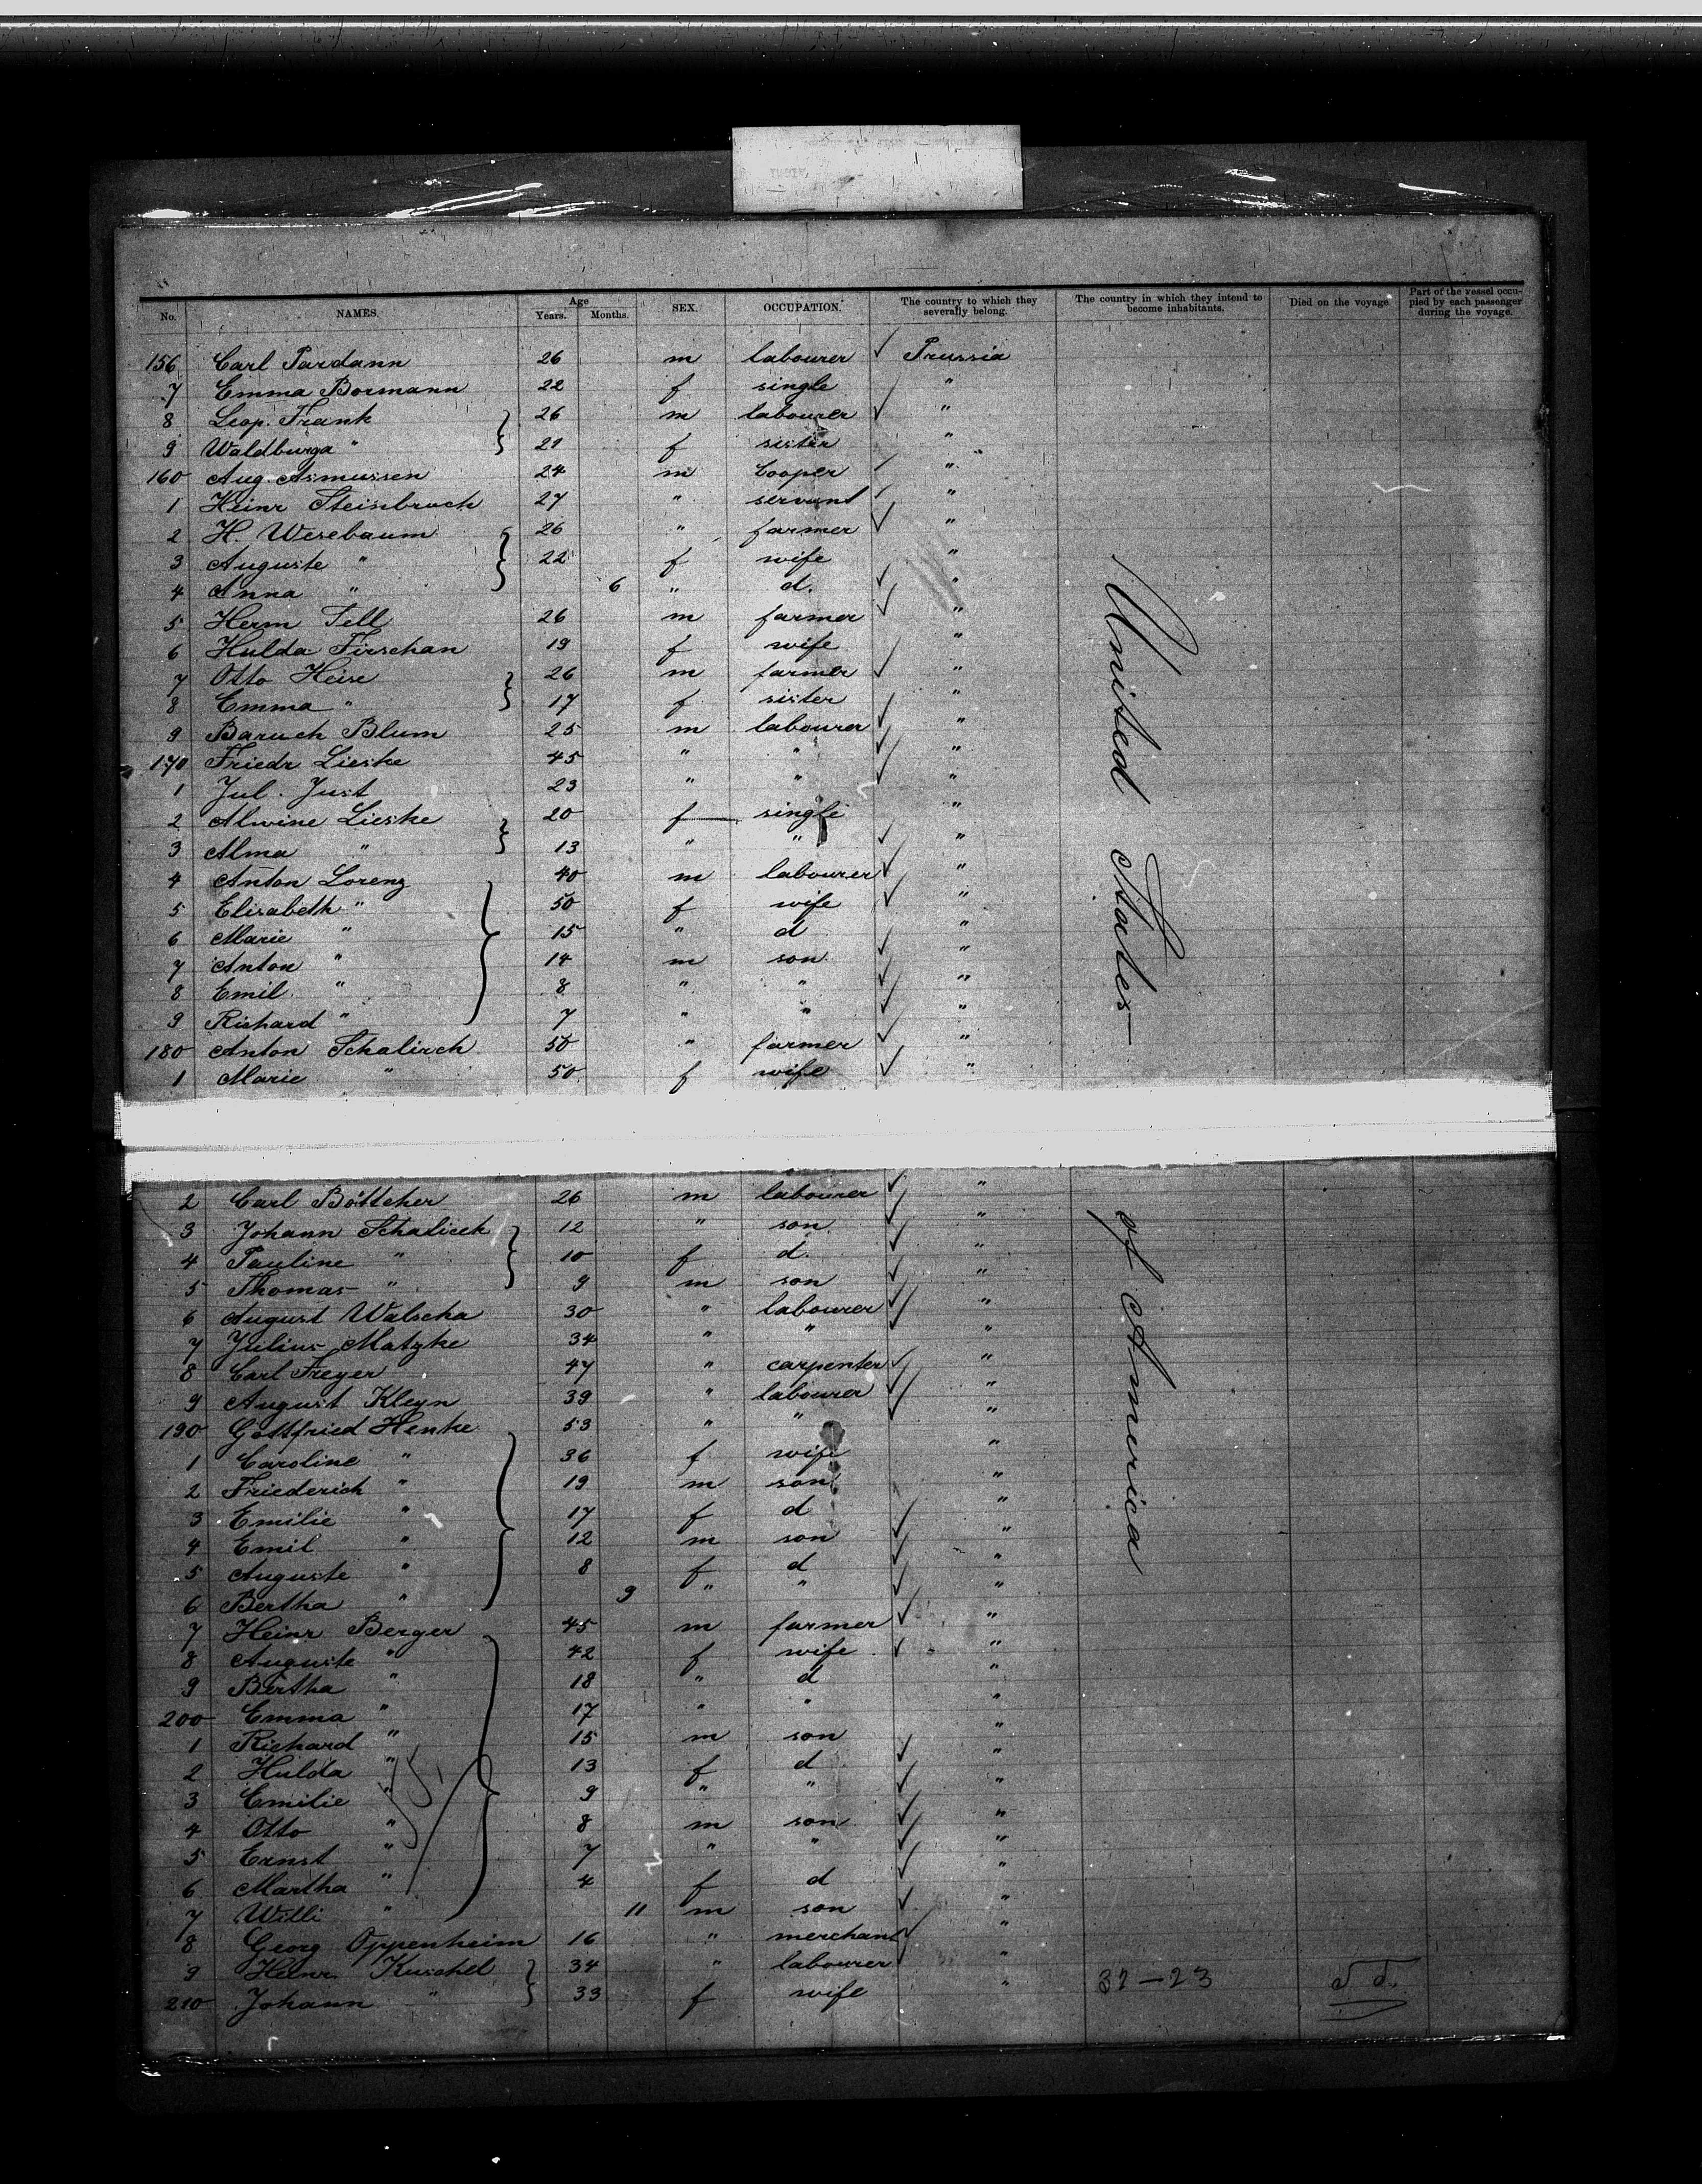 No. NAMES. Age Years. Months. SEX. OCCUPATION. The country to which they severally belong. The country in which they intend to become inhabitants. Died on the voyage. Part of the vessel occupied by each passenger during the voyage.
156 Carl Pardann 26 m labourer ✓ Prussia
7 Emma Bormann 22 f single "
8 Leop. Frank 26 m labourer ✓ "
9 Waldburga " 21 f sister "
160 Aug. Asmussen 24 m Cooper "
1 Heinr Steinbruch 27 " servant "
2 H. Wesebaum 26 " farmer ✓ "
3 Auguste " 22 f wife "
4 Anna " 6 " d. ✓ "
5 Herm Tell 26 m farmer ✓ "
6 Hulda Firschan 19 f wife "
7 Otto Heise 26 m farmer ✓ "
8 Emma " 17 f sister "
9 Baruch Blum 25 m labourer ✓ "
170 Friedr Lieske 45 " " ✓ "
1 Jul. Just 23 " " ✓ "
2 Alwine Lieske 20 f single "
3 Alma " 13 " " ✓ "
4 Anton Lorenz 40 m labourer ✓ "
5 Elisabeth " 50 f wife ✓ "
6 Marie " 15 " d "
7 Anton " 14 m son ✓ "
8 Emil " 8 " " ✓ "
9 Richard " 7 " " ✓ "
180 Anton Schalisch 50 " farmer ✓ "
1 Marie " 50 f wife ✓ "
2 Carl Böttcher 26 m labourer ✓ "
3 Johann Schalisch 12 " son ✓ "
4 Pauline " 10 f d. ✓ "
5 Thomas " 9 m son ✓ "
6 August Walscha 30 " labourer ✓ "
7 Julius Matzke 34 " " ✓ "
8 Carl Freyer 47 " carpenter ✓ "
9 August Kleyn 39 " labourer ✓ "
190 Gottfried Henke 53 " " ✓ "
1 Caroline " 36 f wife "
2 Friederich " 19 m son "
3 Emilie " 17 f d ✓ "
4 Emil " 12 m son ✓ "
5 Auguste " 8 f d ✓ "
6 Bertha " 9 " " ✓ "
7 Heinr Berger 45 m farmer ✓ "
8 Auguste " 42 f wife ✓ "
9 Bertha " 18 " d "
200 Emma " 17 " " "
1 Richard " 15 m son "
2 Hulda " 13 f d ✓ "
3 Emilie " 9 " " ✓ "
4 Otto " 8 m son ✓ "
5 Ernst " 7 " " ✓ "
6 Martha " 4 f d ✓ "
7 Willi " 11 m son ✓ "
8 Georg Oppenheim 16 " merchant ✓ "
9 Heinr Kuschel 34 " labourer "
210 Johann " 33 f wife "
United States
of America
32-23